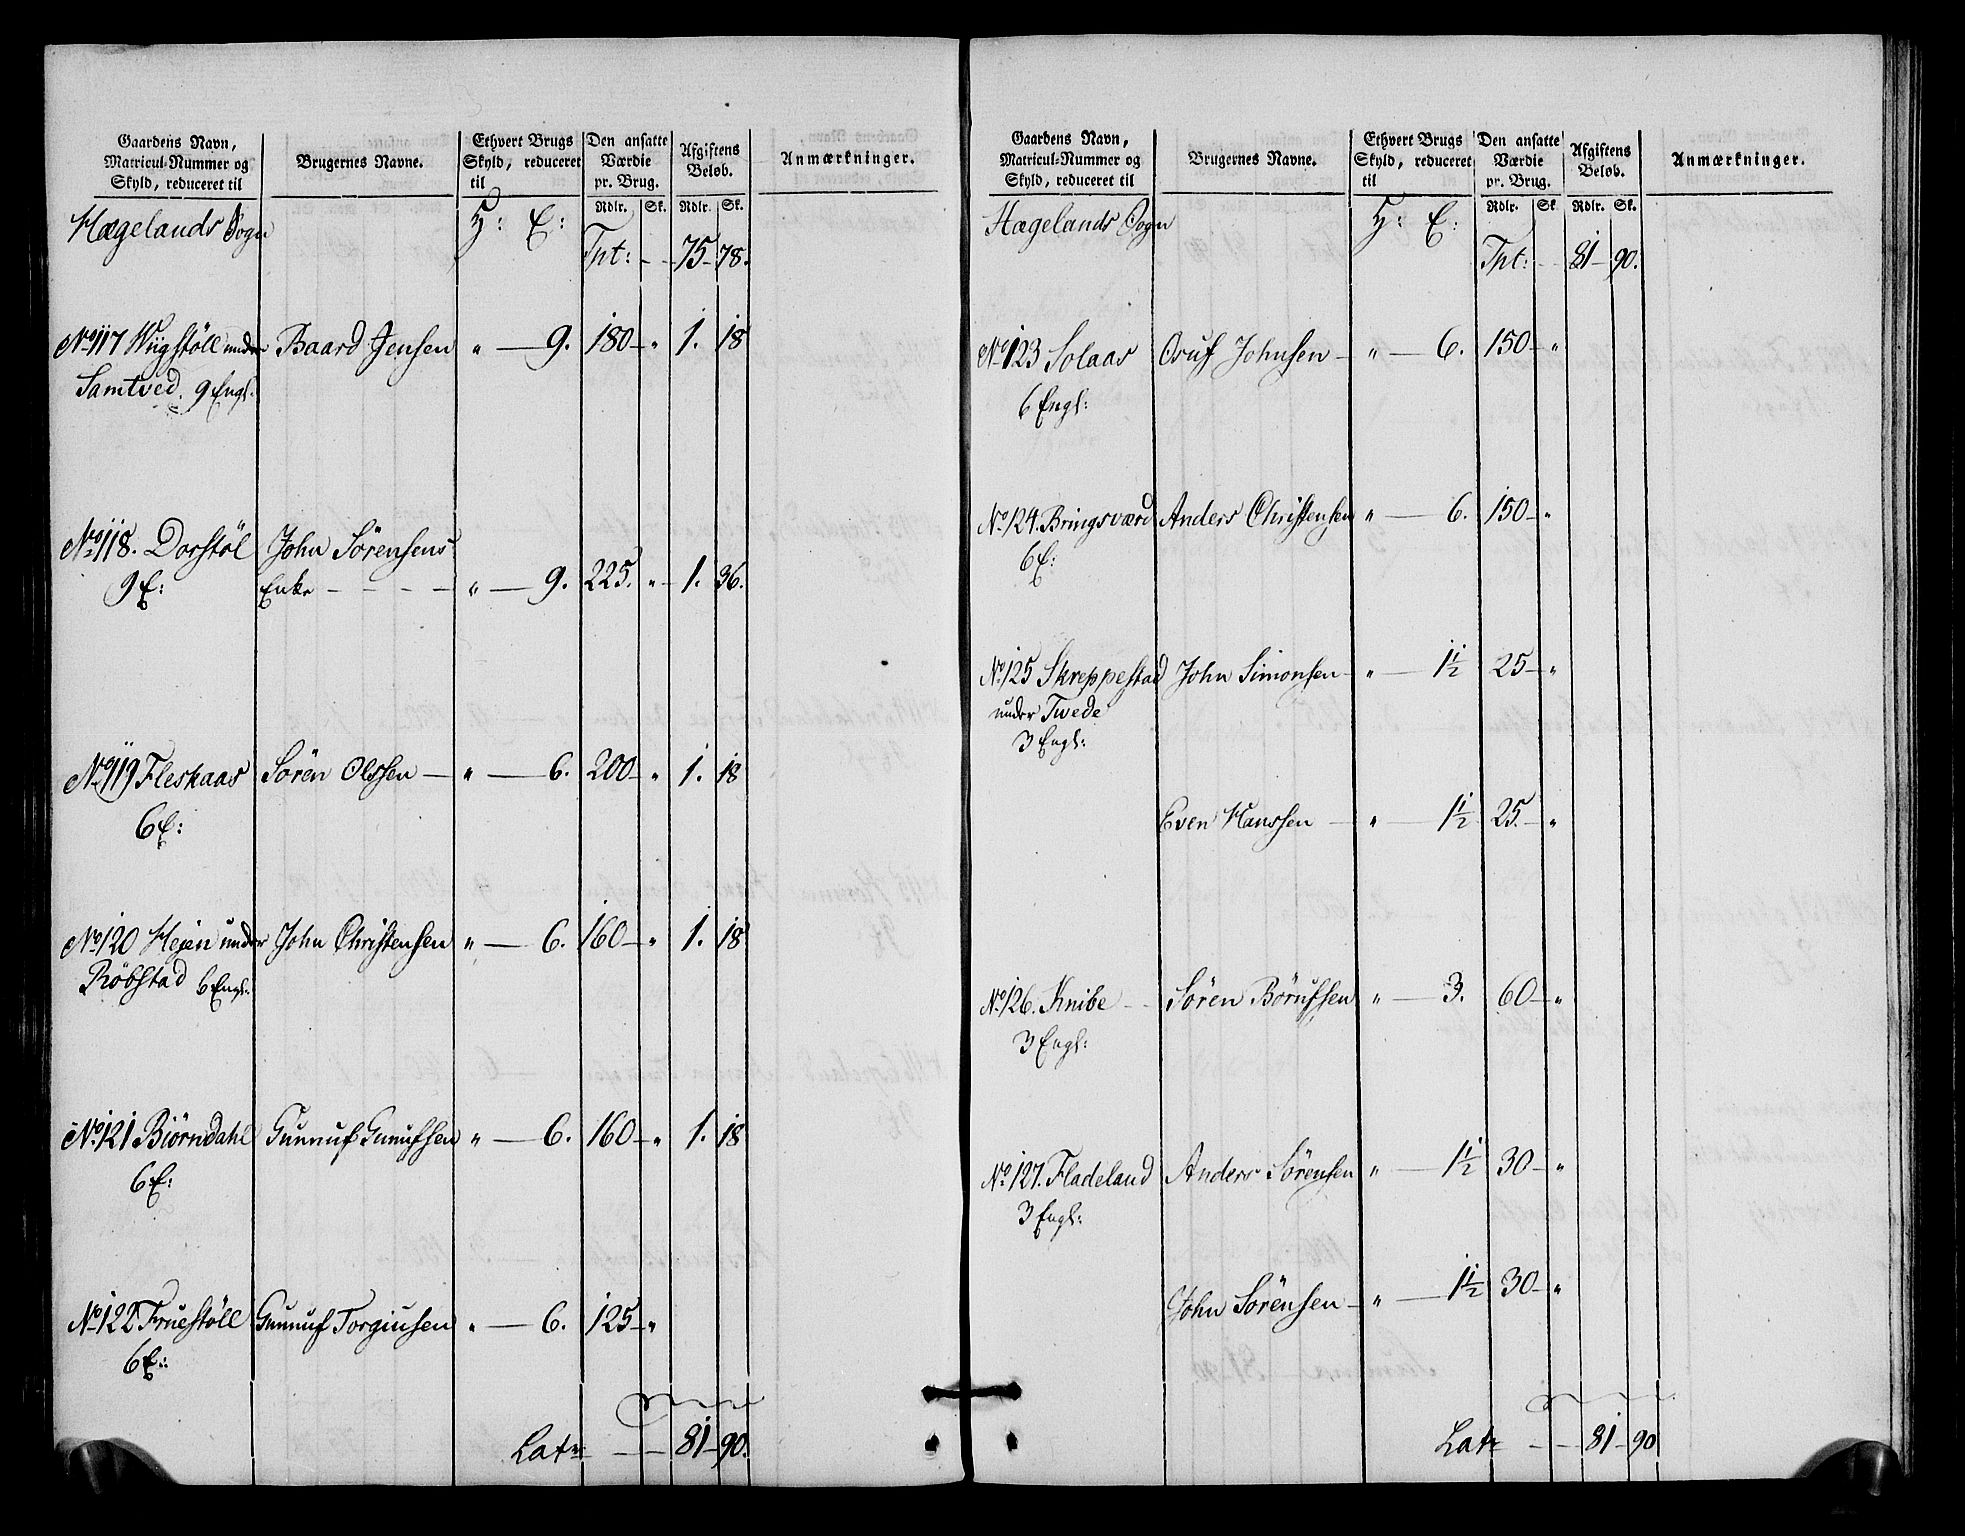 Gaardens Navn,
Matricul-Nummer og
Skyld, reduceret til
Brugernes Navne.
Ethvert Brugs
Skyld, reduceret
til
Den ansatte
Værdie
pr. Brug.
Afgiftens
Beløb.
Anmærkninger.
Rdlr. Sk. Rdlr. Sk.
Hægelands Sogn
H: E:
Tpt: - - 75 - 78.
No 117 Wiigstöll under Baard Jensen " — 9. 180 — " 1. 18
Samtved. 9 Engl:
No 118. Dorstöl John Sörensens
9 E: Enke - - - - " — 9. 225. " 1. 36.
No 119 Fleskaas Sören Olssen — " — 6. 200 — " 1. 18
6 E:
No 120 Hejen under John Christensen " — 6. 160 — " 1. 18
Röbstad 6 Engl:
No 121 Biörndahl Gunnuf Gunufsen " — 6. 160 — " 1. 18
6 E:
No 122 Fruestöll Gunnuf Torgiusen " — 6. 125 — "
6 E:
Latr — — 81 - 90.
Gaardens Navn,
Matricul-Nummer og
Skyld, reduceret til
Brugernes Navne.
Ethvert Brugs
Skyld, reduceret
til
Den ansatte
Værdie
pr. Brug.
Afgiftens
Beløb.
Anmærkninger.
Rdlr. Sk Rdlr. Sk.
Hægelands Sogn
H: E:
Tpt: - - 81 - 90.
No 123 Solaas Osuf Johnsen — " — 6. 150 — "
6 Engl:
No 124. Bringsværd Anders Christensen " — 6. 150 — "
6 E:
No 125 Skreppestad John Simonsen — " — 1½ 25 — "
under Twede
3 Engl:
Even Hanssen — " — 1½ 25. — "
No 126. Knibe - - Sören Börufsen " — 3. 60 — "
3 Engl:
No 127. Fladeland Anders Sörensen " — 1½ 30 — "
3 Engl:
John Sörensen — " — 1½ 30 — "
Latr - - 81 - 90